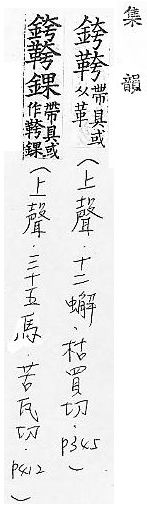 集韻
銙鞶帶具或从革（上聲．十二蟹、枯買切．P345）
銙鞶錁帶具或作鞶錁（上聲．三十五馬．苦瓦切．P412）